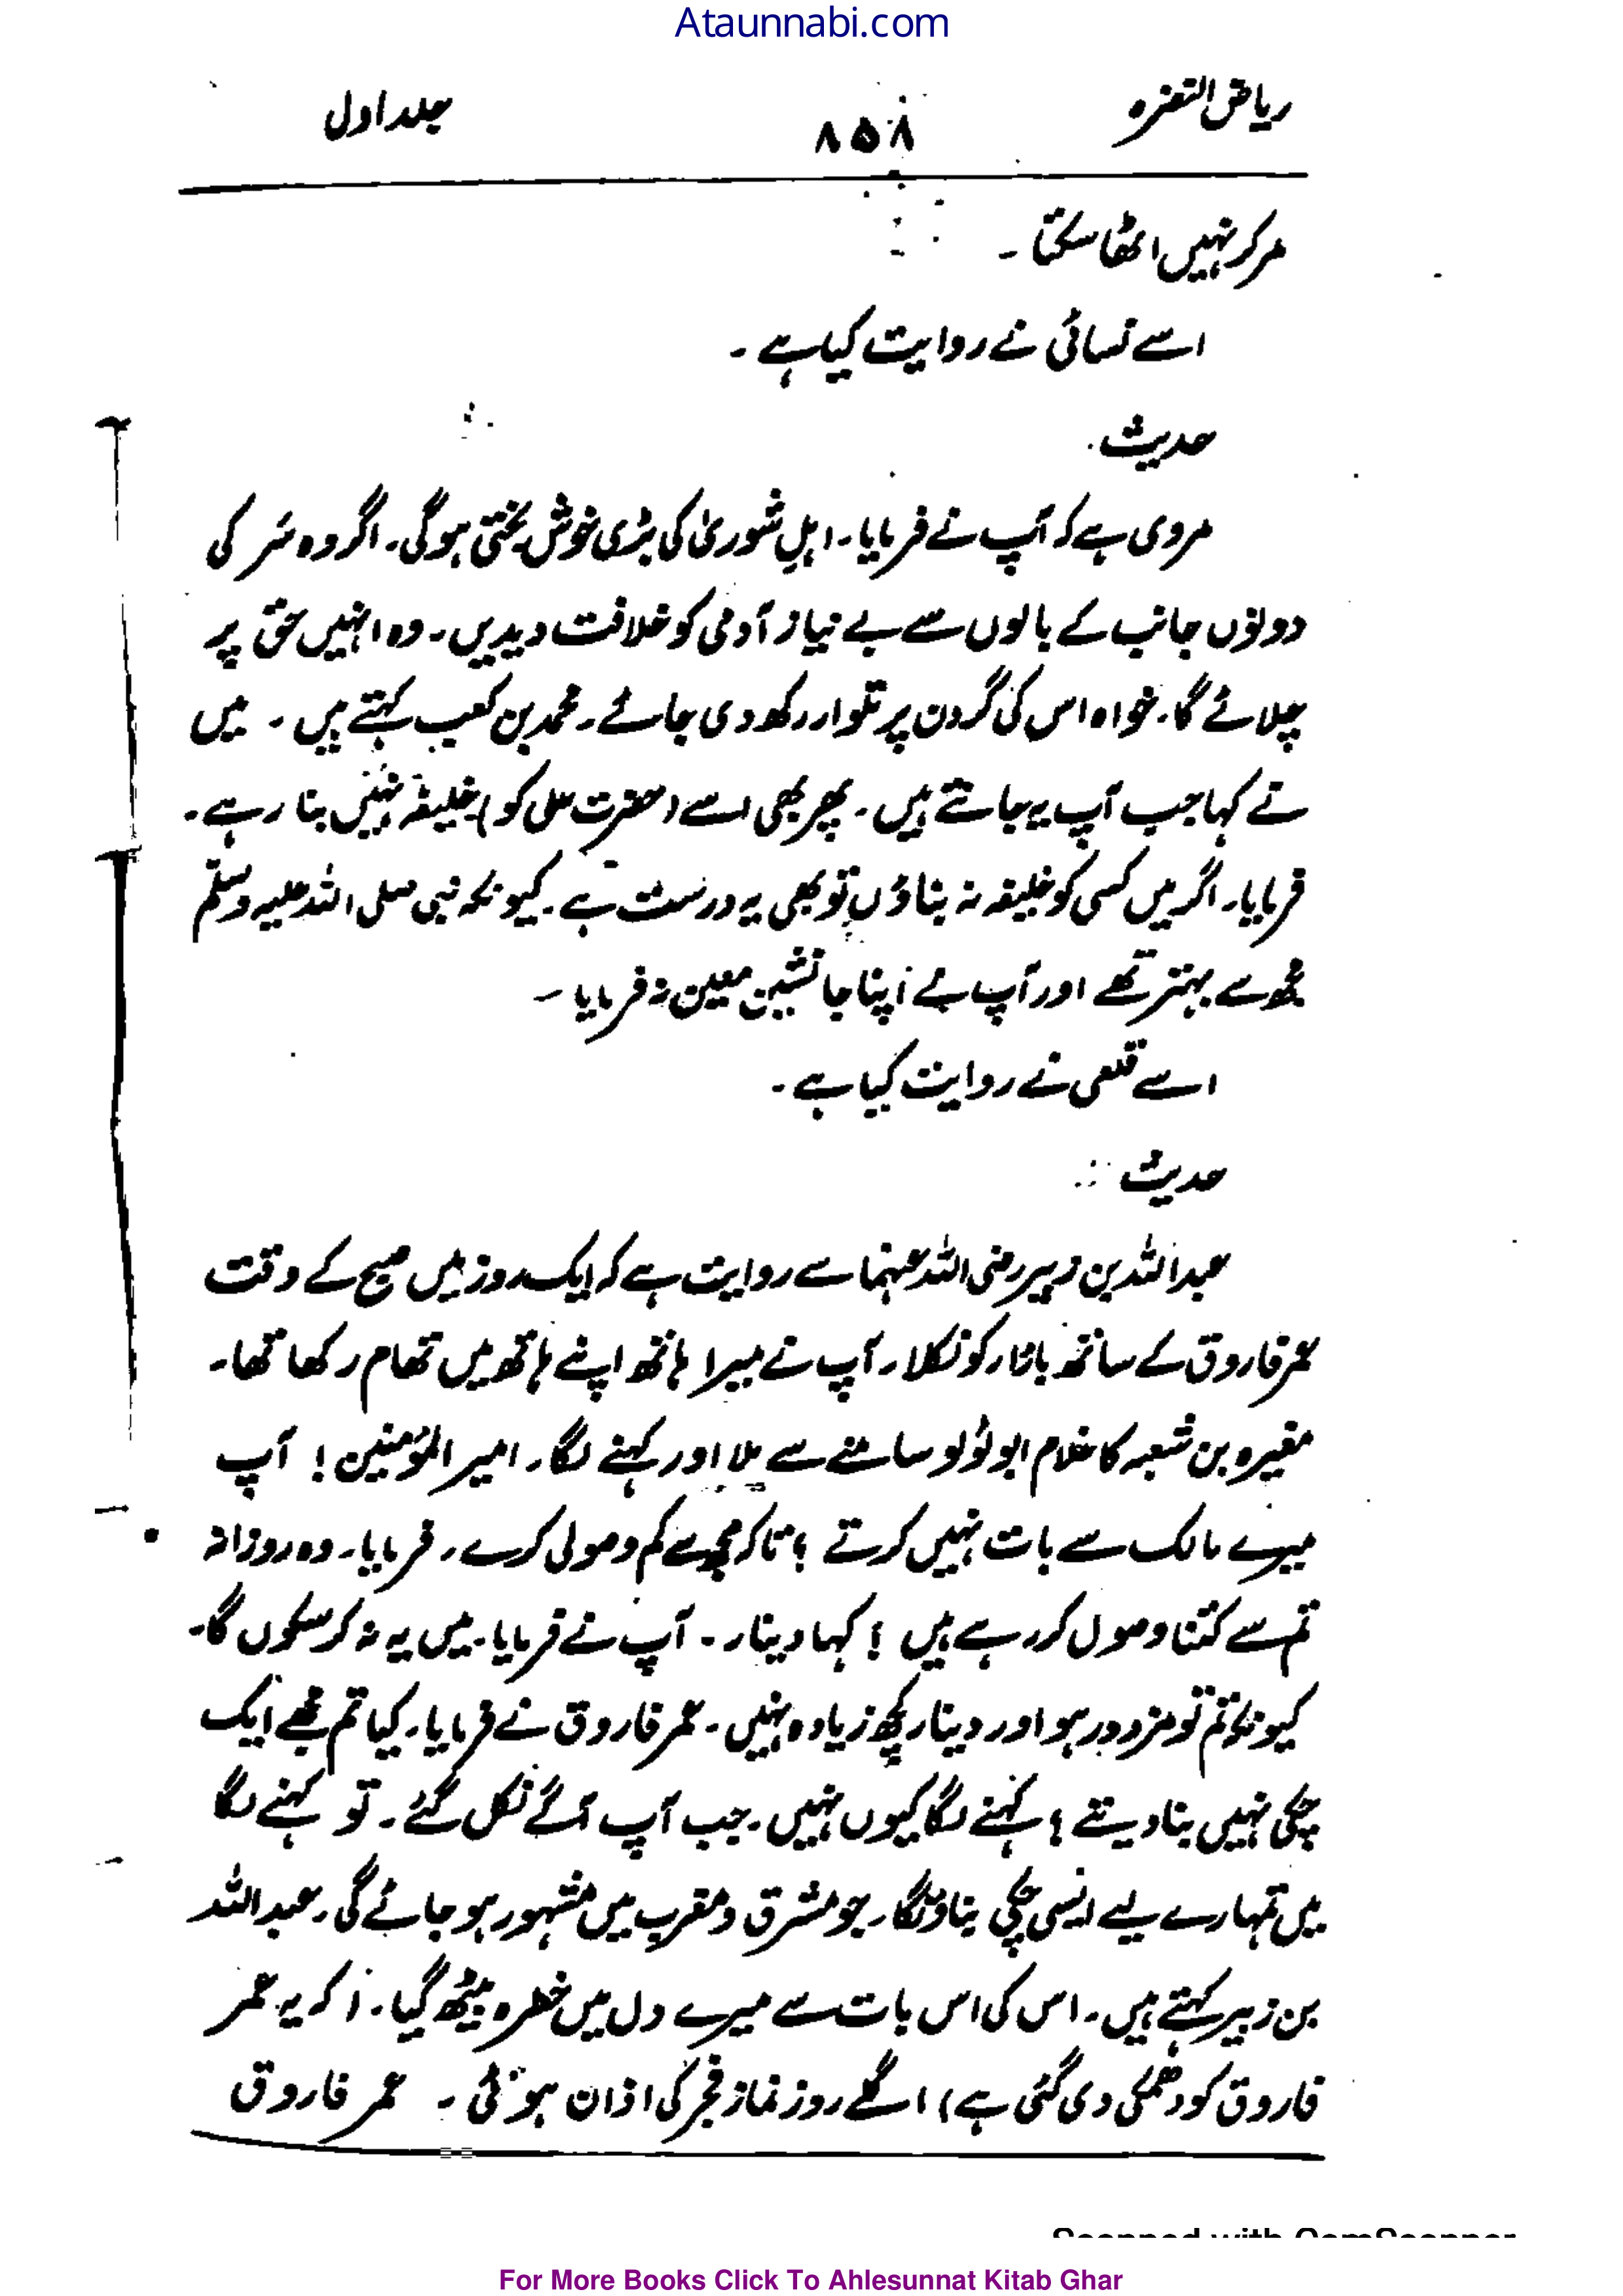 Ataunnabi.com
ریاض النضرہ ۸۵۸ جلد اول
مر کر نہیں اٹھا سکتا ۔
اسے نسائی نے روایت کیا ہے ۔
حدیث
مروی ہے کہ آپ نے فرمایا۔ اہلِ شوریٰ کی بڑی خوش بختی ہوگی۔ اگر وہ سَر کی
دونوں جانب کے بالوں سے بے نیاز آدمی کو خلافت دیدیں۔ وہ انہیں حق پر
چلائے گا۔ خواہ اس کی گردن پر تلوار رکھ دی جائے۔ محمد بن کعب کہتے ہیں ۔ میں
نے کہا جب آپ یہ جانتے ہیں ۔ پھر بھی اسے (حضرت علی کو) خلیفہ نہیں بنا رہے۔
فرمایا۔ اگر میں کسی کو خلیفہ نہ بناؤں تو بھی یہ درست ہے۔ کیونکہ نبی صلی اللہ علیہ وسلم
مجھ سے بہتر تھے اور آپ نے اپنا جانشین معین نہ فرمایا ۔
اسے قلعی نے روایت کیا ہے ۔
حدیث :
عبداللہ بن زبیر رضی اللہ عنہما سے روایت ہے کہ ایک روز میں صبح کے وقت
عمر فاروق کے ساتھ بازار کو نکلا۔ آپ نے میرا ہاتھ اپنے ہاتھ میں تھام رکھا تھا۔
مغیرہ بن شعبہ کا غلام ابو لؤلو سامنے سے ملا اور کہنے لگا۔ امیر المؤمنین ! آپ
میرے مالک سے بات نہیں کرتے ؟ تاکہ مجھ سے کم وصولی کرے۔ فرمایا۔ وہ روزانہ
تم سے کتنا وصول کر رہے ہیں ؟ کہا دینار ۔ آپ نے فرمایا۔ میں یہ نہ کر سکوں گا۔
کیونکہ تم تو مزدور ہو اور دینار کچھ زیادہ نہیں ۔ عمر فاروق نے فرمایا۔ کیا تم مجھے ایک
چکی نہیں بنا دیتے ؟ کہنے لگا کیوں نہیں ۔ جب آپ آگے نکل گئے ۔ تو کہنے لگا
میں تمہارے لیے ایسی چکی بناؤنگا۔ جو مشرق و مغرب میں مشہور ہو جائے گی۔ عبداللہ
بن زبیر کہتے ہیں۔ اس کی اس بات سے میرے دل میں خطرہ بیٹھ گیا۔ (کہ یہ عمر
فاروق کو دھمکی دی گئی ہے) اگلے روز نماز فجر کی اذان ہوئی ۔ عمر فاروق
Scanned with CamScanner
For More Books Click To Ahlesunnat Kitab Ghar